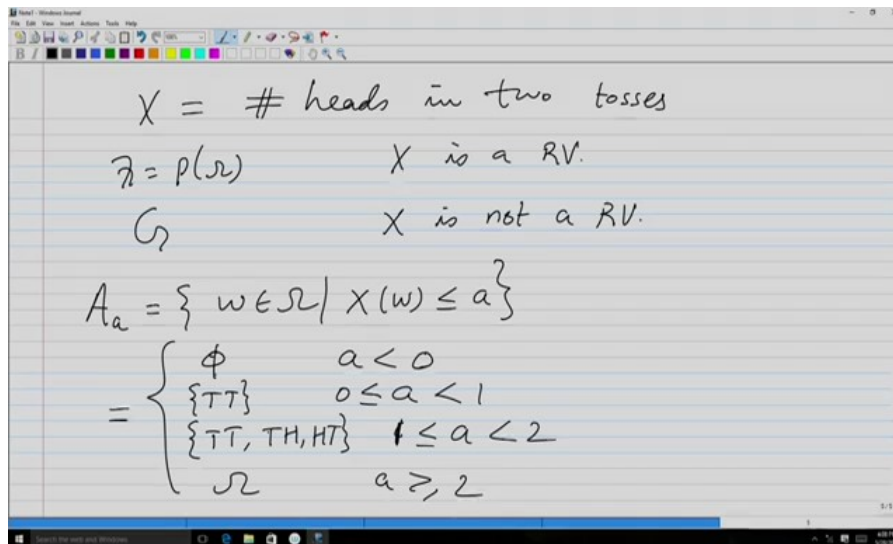 Note1 - Windows Journal
File Edit View Insert Actions Tools Help
B I
X = # heads in two tosses
ℱ = P(Ω) X is a RV.
G X is not a RV.
A_a = { ω ∈ Ω | X(ω) ≤ a }
= { φ a < 0
{TT} 0 ≤ a < 1
{TT, TH, HT} 1 ≤ a < 2
Ω a ≥ 2
5/5
Search the web and Windows